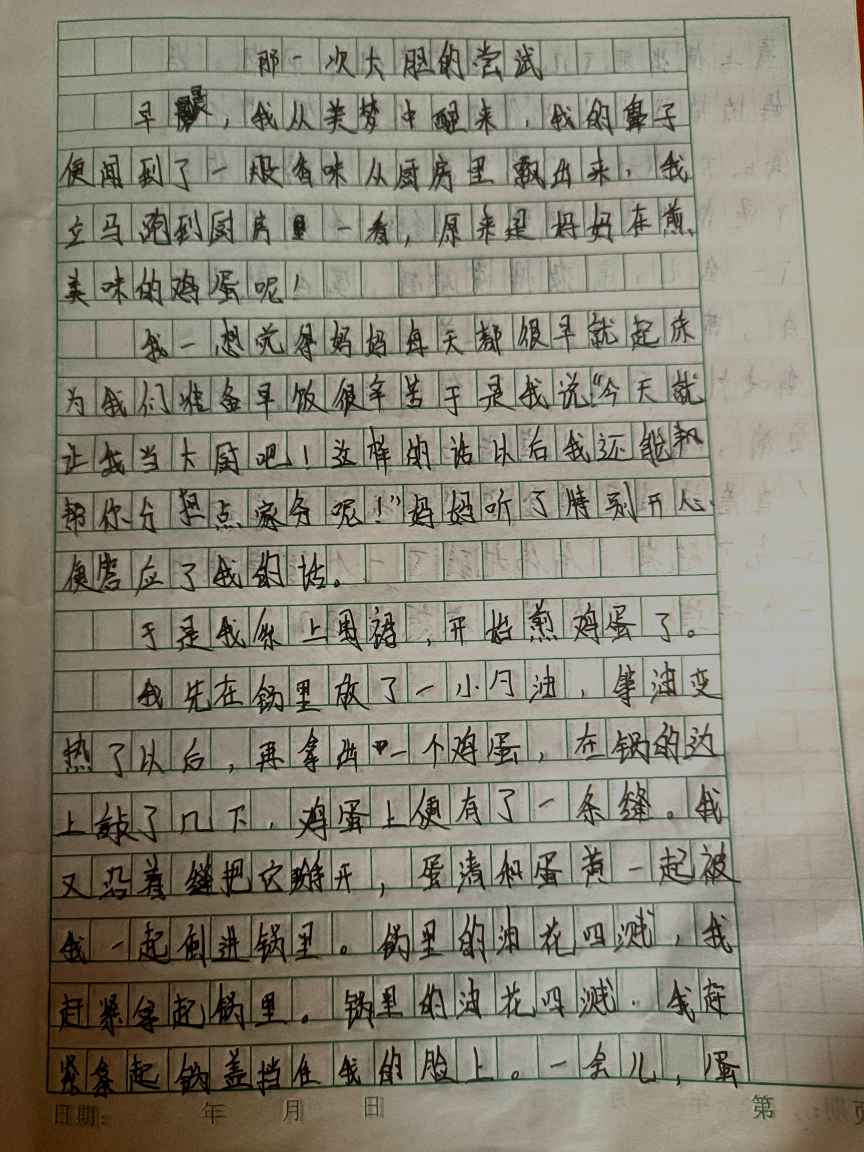 那一次大胆的尝试
早晨，我从美梦中醒来，我的鼻子
便闻到了一股香味从厨房里飘出来，我
立马跑到厨房里一看，原来是妈妈在煎
美味的鸡蛋呢！
我一想觉得妈妈每天都很早就起床
为我们准备早饭很辛苦于是我说“今天就
让我当大厨吧！这样的话以后我还能帮
帮你分担点家务呢！”妈妈听了特别开心
便答应了我的话。
于是我系上围裙，开始煎鸡蛋了。
我先在锅里放了一小勺油，等油变
热了以后，再拿出一个鸡蛋，在锅的边
上敲了几下，鸡蛋上便有了一条缝。我
又沿着缝把它掰开，蛋清和蛋黄一起被
我一起倒进锅里。锅里的油花四溅，我
赶紧拿起锅里。锅里的油花四溅．我赶
紧拿起锅盖挡在我的脸上。一会儿，蛋
日期： 年 月 日 第 页